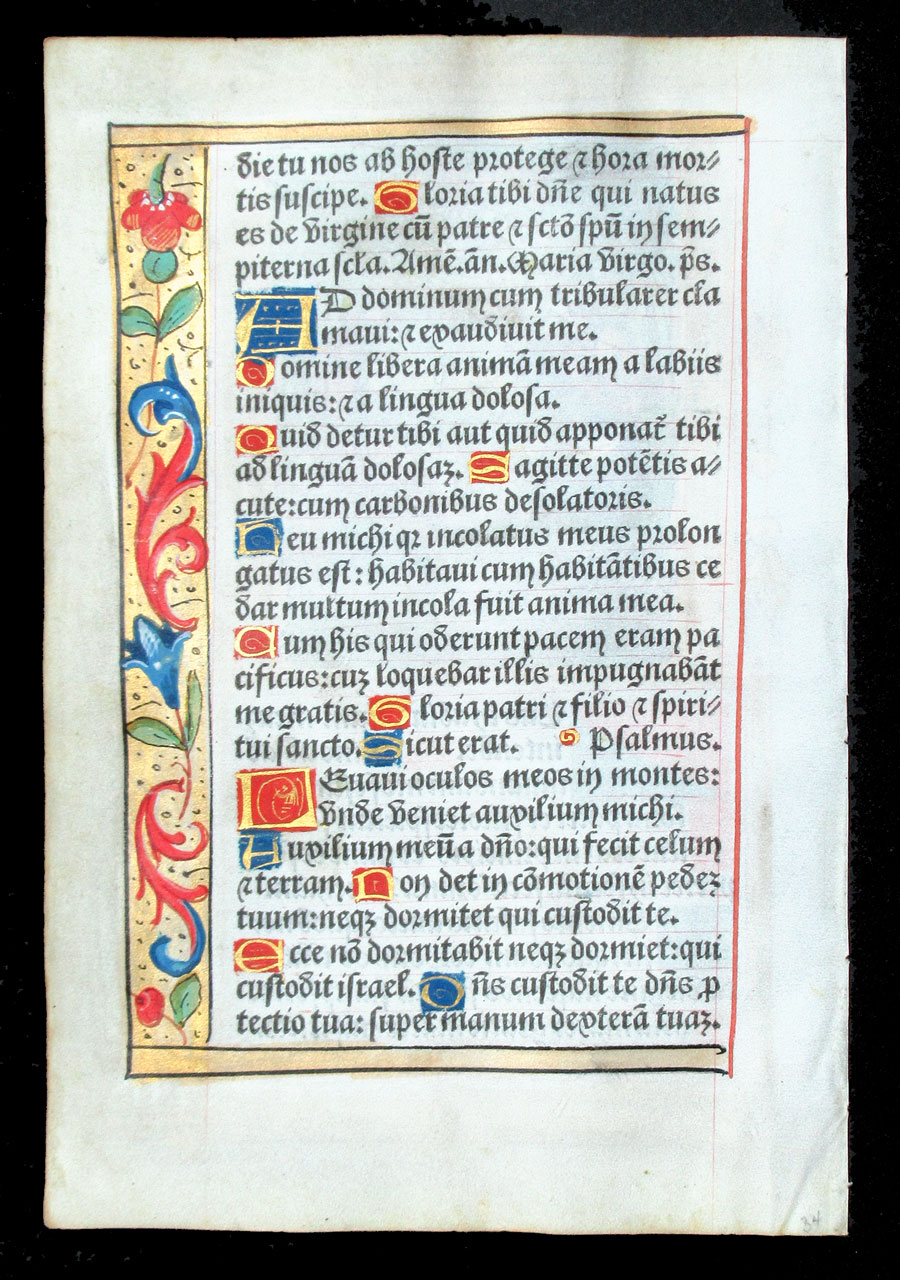 die tu nos ab hoste protege ⁊ hora mor⸗
tis suscipe. Gloria tibi dn̄e qui natus
es de virgine cū patre ⁊ sctō spū in sem⸗
piterna scla. Amē. an̄. Maria virgo. p̄s.
AD dominum cum tribularer cla
maui: ⁊ exaudiuit me.
Domine libera animā meam a labiis
iniquis: ⁊ a lingua dolosa.
Quid detur tibi aut quid apponat᷑ tibi
ad linguā dolosaꝫ. Sagitte potētis a⸗
cute: cum carbonibus desolatoris.
Heu michi qꝛ incolatus meus prolon
gatus est: habitaui cum habitātibus ce
dar multum incola fuit anima mea.
Cum his qui oderunt pacem eram pa
cificus: cuꝫ loquebar illis impugnabāt
me gratis. Gloria patri ⁊ filio ⁊ spiri⸗
tui sancto. Sicut erat. Psalmus.
LEuaui oculos meos in montes:
vnde veniet auxilium michi.
Auxilium meū a dn̄o: qui fecit celum
⁊ terram. Non det in cōmotionē pedeꝫ
tuum: neqꝫ dormitet qui custodit te.
Ecce nō dormitabit neqꝫ dormiet: qui
custodit israel. Dn̄s custodit te dn̄s ꝓ
tectio tua: super manum dexterā tuaꝫ.
34